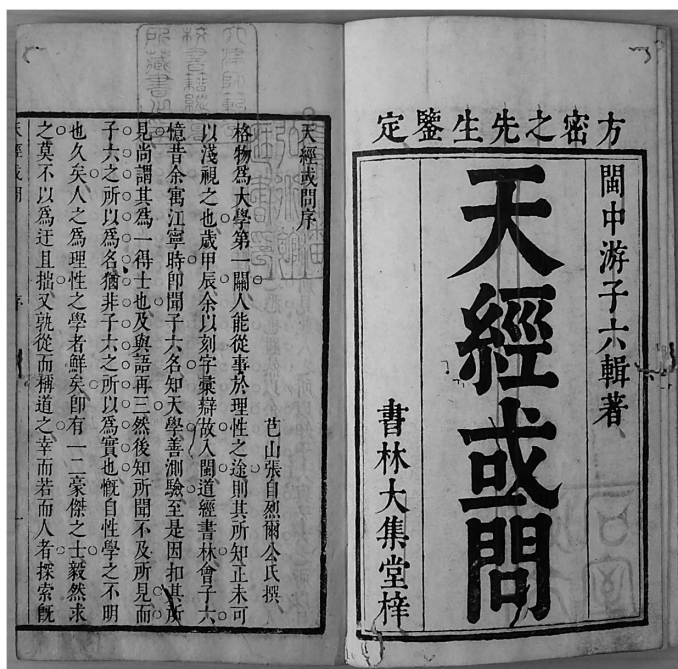 方密之先生鑒定
閩中游子六輯著
天經或問
書林大集堂梓
天經或問序
芑山張自烈爾公氏撰
格物爲大學第一關人能從事於理性之途則其所知正未可
以淺視之也歲甲辰余以刻字彙辯故入閩道經書林會子六
憶昔余寓江寧時卽聞子六名知天學善測驗至是因扣其所
見尚謂其爲一得士也及與語再三然後知所聞不及所見而
子六之所以爲名猶非子六之所以爲實也慨自性學之不明
也久矣人之爲理性之學者鮮矣卽有一二豪傑之士毅然求
之莫不以爲迂且拙又孰從而稱道之幸而若而人者探索旣
天經或問
序
一